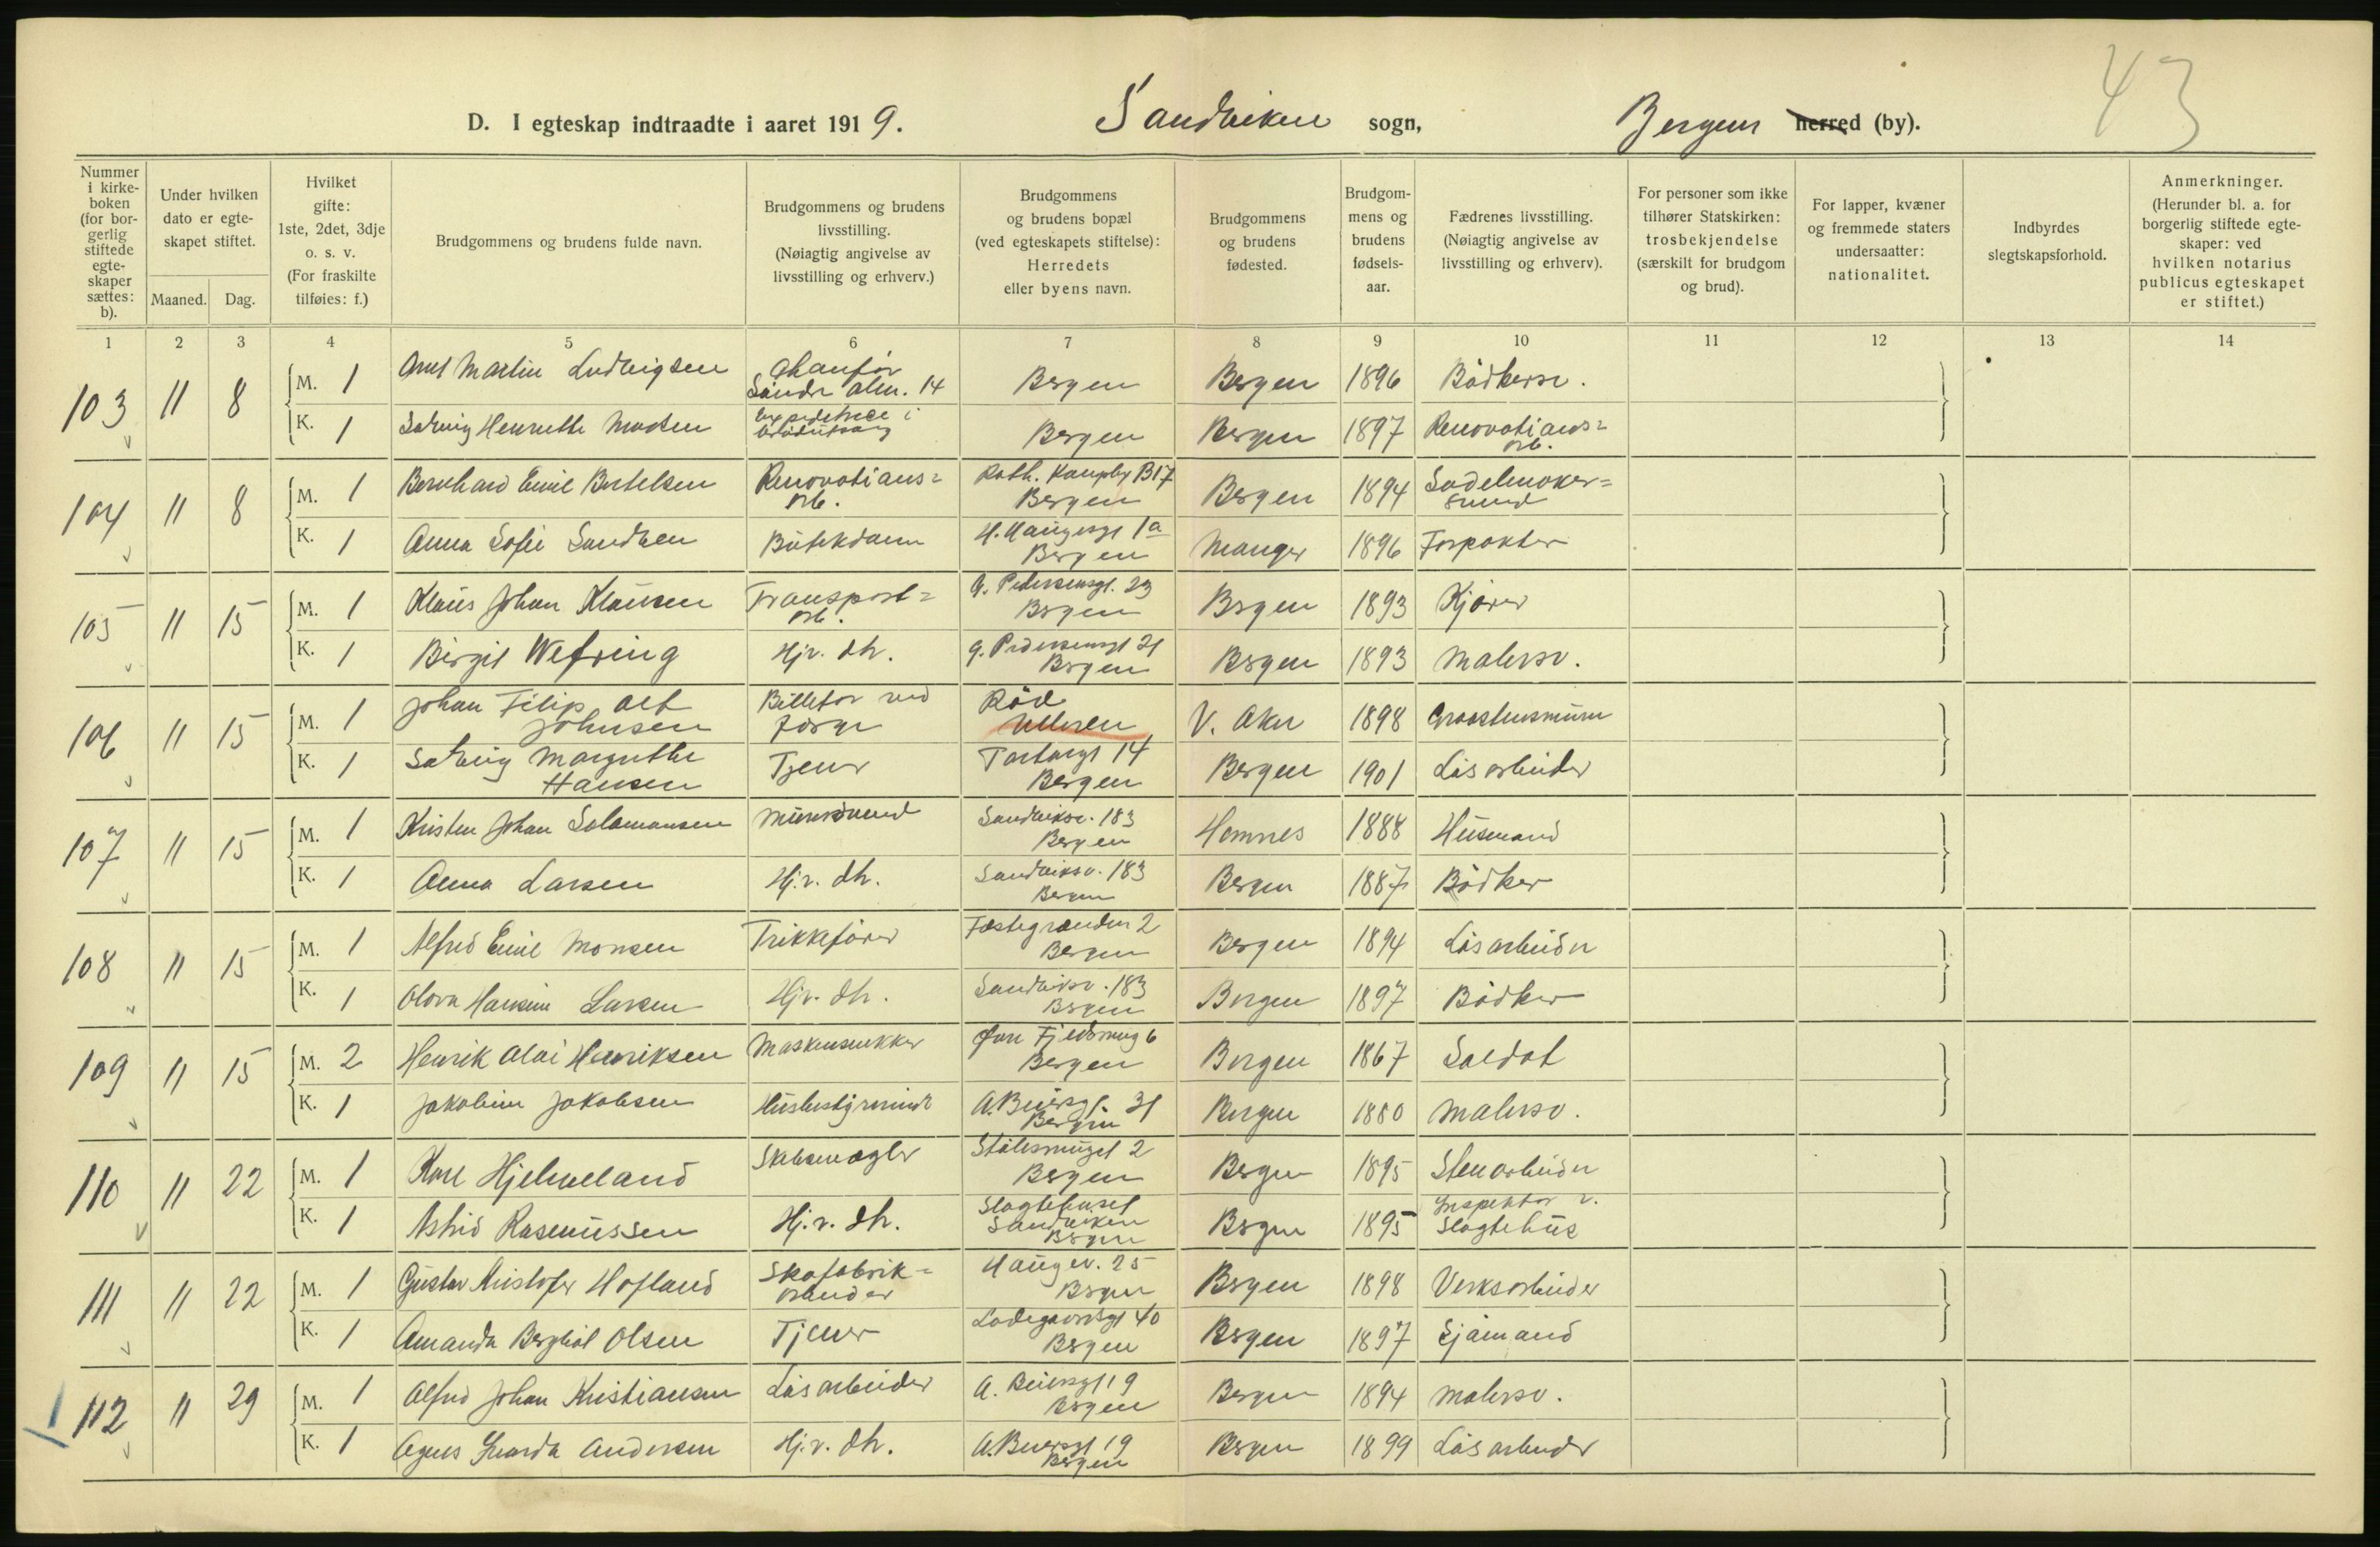 43
D. I egteskap indtraadte i aaret 1919. Sandviken sogn, Bergens herred (by).
Nummer i kirkeboken (for borgerlig stiftede egteskaper sættes: b).
Under hvilken dato er egteskapet stiftet.
Maaned. Dag.
Hvilket gifte: 1ste, 2det, 3dje o. s. v. (For fraskilte tilføies: f.)
Brudgommens og brudens fulde navn.
Brudgommens og brudens livsstilling. (Nøiagtig angivelse av livsstilling og erhverv.)
Brudgommens og brudens bopæl (ved egteskapets stiftelse): Herredets eller byens navn.
Brudgommens og brudens fødested.
Brudgommens og brudens fødselsaar.
Fædrenes livsstilling. (Nøiagtig angivelse av livsstilling og erhverv).
For personer som ikke tilhører Statskirken: trosbekjendelse (særskilt for brudgom og brud).
For lapper, kvæner og fremmede staters undersaatter: nationalitet.
Indbyrdes slegtskapsforhold.
Anmerkninger. (Herunder bl. a. for borgerlig stiftede egteskaper: ved hvilken notarius publicus egteskapet er stiftet.)
1 2 3 4 5 6 7 8 9 10 11 12 13 14
103 11 8 M. 1 Martin Ludvigsen Chaufför Söndr alm. 14 Bergen Bergen 1896 Bödkersv.
K. 1 Solveig Henriette Madsen i Bergen Bergen 1897 Renovations= arb.
104 11 8 M. 1 Bernhard Emil Bertelsen Renovations= arb. Roth. Kampby B17 Bergen Bergen 1894 Sadelmaker= svend
K. 1 Anna Sofie Sandven Butikdame H. Haugesgt 1a Bergen Manger 1896 Forpakter
105 11 15 M. 1 Klaus Johan Klausen Transport= arb. G. Pedersensgt. 23 Bergen Bergen 1893 Kjører
K. 1 Birgit Wefring Hj.v. dh. G. Pedersensgt 21 Bergen Bergen 1893 Malersv.
106 11 15 M. 1 Johan Filip Alf Johnsen Billetør ved Röd Ulleren V. Aker 1898
K. 1 Solveig Margrethe Hansen Tjener 14 Bergen Bergen 1901 Lösarbeider
107 11 15 M. 1 Kristen Johan Salamonsen Mursvend Sandviksv. 183 Bergen Hemnes 1888 Husmand
K. 1 Anna Larsen Hj.v. dh. Sandviksv. 183 Bergen Bergen 1887 Bödker
108 11 15 M. 1 Alfred Emil Monsen Trikkefører Festegrænden 2 Bergen Bergen 1894 Lösarbeider
K. 1 Olava Hansine Larsen Hj.v. dh. Sandviksv. 183 Bergen Bergen 1897 Bödker
109 11 15 M. 2 Henrik Olai Henriksen Maskensmekker Øvre Fjeldsmug 6 Bergen Bergen 1867 Soldat
K. 1 Jakobine Jakobsen Husbestyrerinde A. Beiersgt. 31 Bergen Bergen 1880 Malersv.
110 11 22 M. 1 Karl Hjelmeland Skibsmægler Stölesmuget 2 Bergen Bergen 1895 Stenarbeider
K. 1 Astrid Rasmussen Hj.v. dh. Slagtehuset Sandviken Bergen Bergen 1895 Inspektør v. Slagtehus
111 11 22 M. 1 Gustav Kristofer Hofland Skofabrik= arbeider Haugev. 25 Bergen Bergen 1898 Verksarbeider
K. 1 Amanda Bergliot Olsen Tjener Ladegaardsgt 40 Bergen Bergen 1897 Sjömand
112 11 29 M. 1 Alfred Johan Kristiansen Lösarbeider A. Beiersgt 19 Bergen Bergen 1894 Malersv.
K. 1 Agnes Andersen Hj.v. dh. A. Beiersgt 19 Bergen Bergen 1899 Lösarbeider